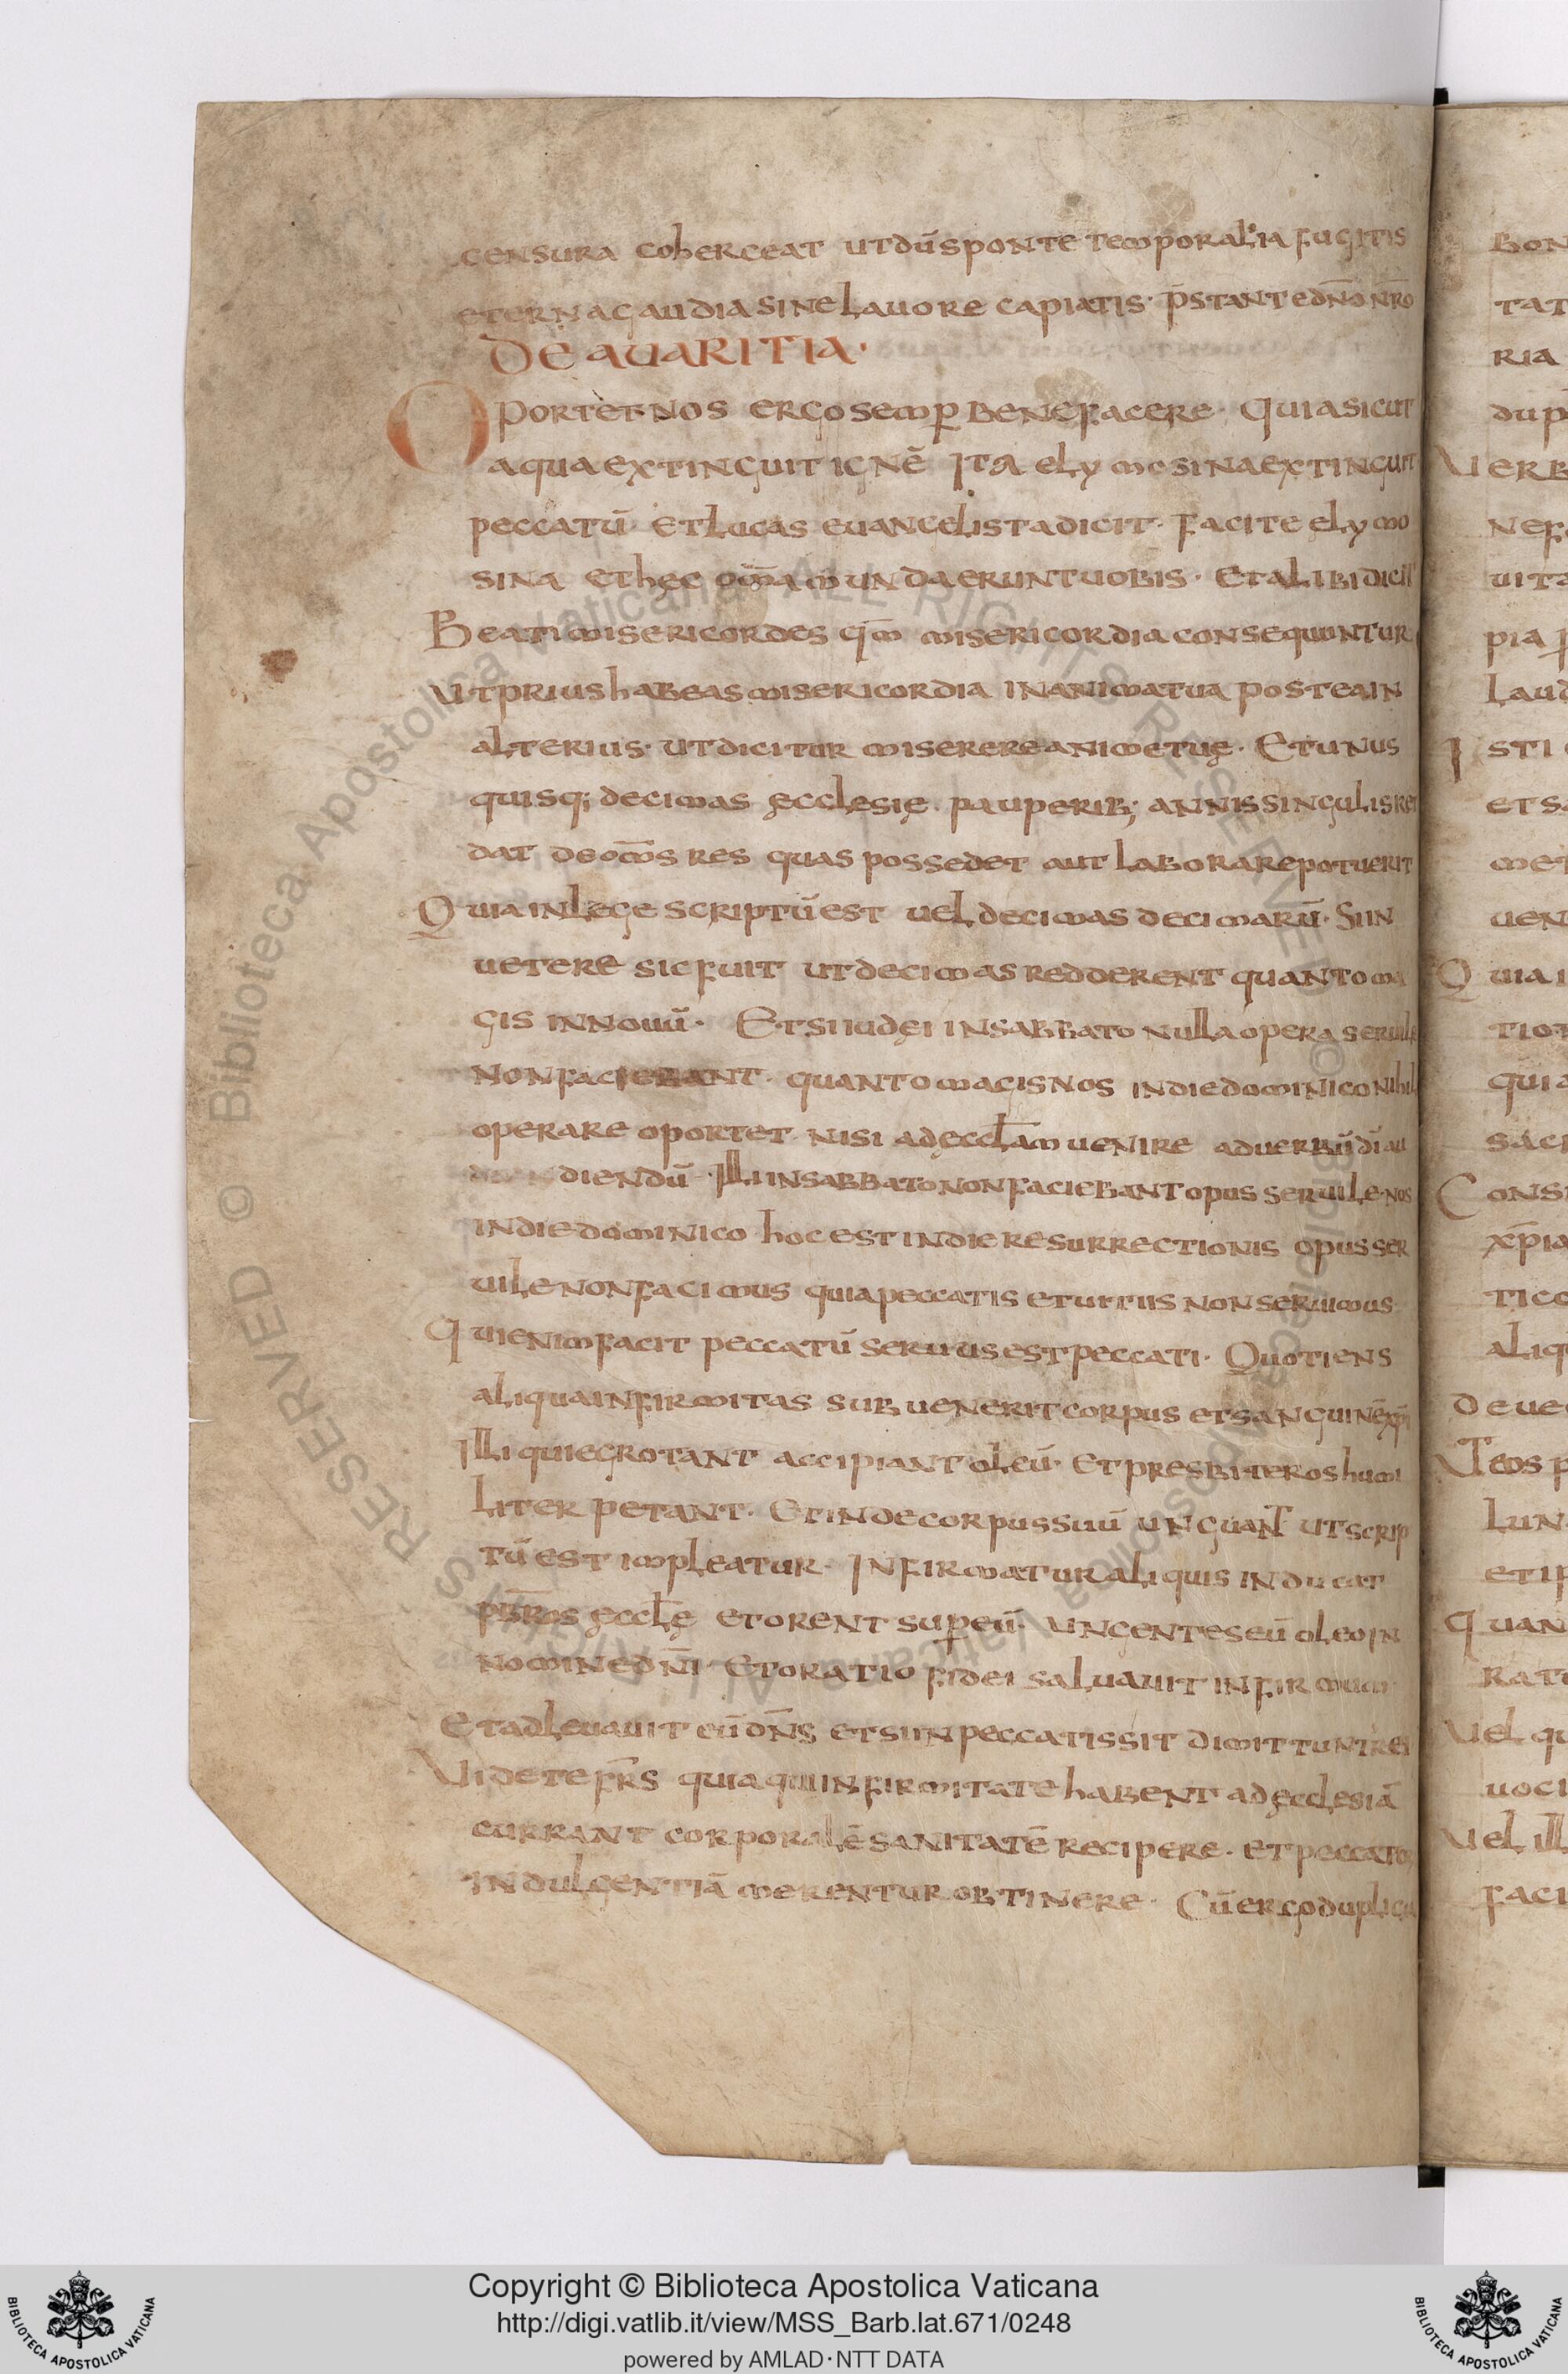 censura coherceat ut dū sponte temporalia fugitis
eterna gaudia sine lauore capiatis · p̄stante dn̄o nr̄o
De auaritia ·
Oportet nos ergo semꝑ bene facere · quia sicut
aqua extinguit ignē Ita elymosina extinguit
peccatū Et lucas euangelista dicit · facite elymo
sina et hęc om̄a munda erunt uobis · Et alibi dicit
Beati misericordes qm̄ misericordia consequuntur
Ut prius habeas misericordia in anima tua postea in
alterius · ut dicitur miserere anime tuę · Et unus
quisq; decimas ęcclesię · pauperib; annis singulis red
dat de om̄s res quas possedet aut laborare potuerit
Quia in lege scriptū est uel decimas decimarū · Si in
uetere sic fuit ut decimas redderent quanto ma
gis in nouū · Et si iudęi in sabbato nulla opera seruile
non faciebant · quanto magis nos in die dominico nihil
operare oportet nisi ad ęccl̄am uenire ad uerbū dī au
diendū · Illi in sabbato non faciebant opus seruile · nos
in die dominico hoc est in die resurrectionis opus ser
uile non facimus quia peccatis et uitiis non seruimus
Qui enim facit peccatū seruus est peccati · Quotiens
aliqua infirmitas subuenerit corpus et sanguinē xp̄i
Illi qui egrotant accipiant oleū · Et presbiteros humi
liter petant · Et inde corpus suū unguant ut scrip
tū est impleatur · Infirmatur aliquis inducat
pb̄ros ęccl̄e et orent sup eū · unguentes eū oleo in
nomine dn̄i · Et oratio fidei saluauit infirmum
Et adleuauit eū dn̄s et si in peccatis sit dimittuntur ei
Videte fr̄s quia qui infirmitate habent ad ęcclesiā
currant corporalē sanitatē recipere · et peccator
indulgentiā merentur obtinere · Cū ergo duplica
Bon
tat
ria
dup
Uerb
nef
uita
pia
laud
Isti
et s
met
uen
Quia i
tio
quia
sac
Cons
xp̄ia
tico
aliq
De ue
lun
et i
Quan
rat
Uel qu
uoci
Uel ill
faci
© Biblioteca Apostolica Vaticana ALL RIGHTS RESERVED
Copyright © Biblioteca Apostolica Vaticana
http://digi.vatlib.it/view/MSS_Barb.lat.671/0248
powered by AMLAD · NTT DATA
BIBLIOTECA APOSTOLICA VATICANA
BIBLIOTECA APOSTOLICA VATICANA